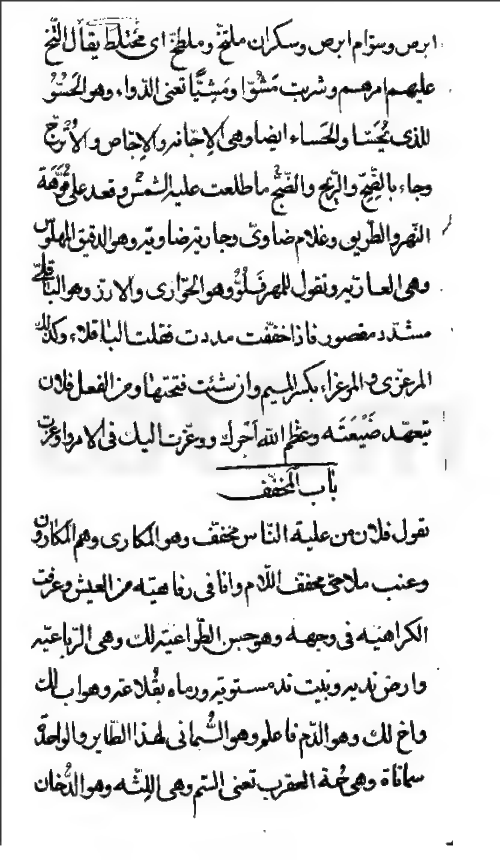 ابرص وسوّام ابرص وسكران ملتخّ وملطخّ اى مختلط يقال التخّ
عليهم امرهم وشربت مَشُوّا ومَشِيّا تعنى الدواء وهو الحَسُوّ
للذى يُحَسَا والحَساء ايضا وهى الاجّانه والاجّاص والاُترجّ
وجاء بالضِحّ والريح والضحّ ما طلعت عليه الشمس وقعد على فُوّهَة
النهر والطريق وغلام ضاوىّ وجارية ضاويّة وهو الدقيق المهلوس
وهى العاريّة وتقول للمهر فَلُوٌّ وهو الحوّارى والارز وهو الباقلّى
مشدّد مقصور فاذا خففت مددت فقلت الباقلاء وكذلك
المرعزّى والمرعزاء بكسر الميم وان شئت فتحتها ومن الفعل فلان
يتعهّد ضَيْعَتَه وعظّم اللّه اَجرك ووعّزت اليك فى الامر واوعزت
باب المخفّف
تقول فلان من علية النّاس مخفّف وهو المكارى وهم المكارون
وعنب ملاحىّ مخفف اللّام وانا فى رفاهيته من العيش وعرفت
الكراهية فى وجهه وهو حسن الطواعية لك وهى الرّباعيّه
وارض نديه وبيت ند مستوية ورماه بقُلاعة وهو اب لك
واخ لك وهو الدّم فاعلم وهو السُمانى لهذا الطاير والواحدة
سماناة وهى حُمة العقرب تعنى السّم وهى اللِثه وهو الدُخان